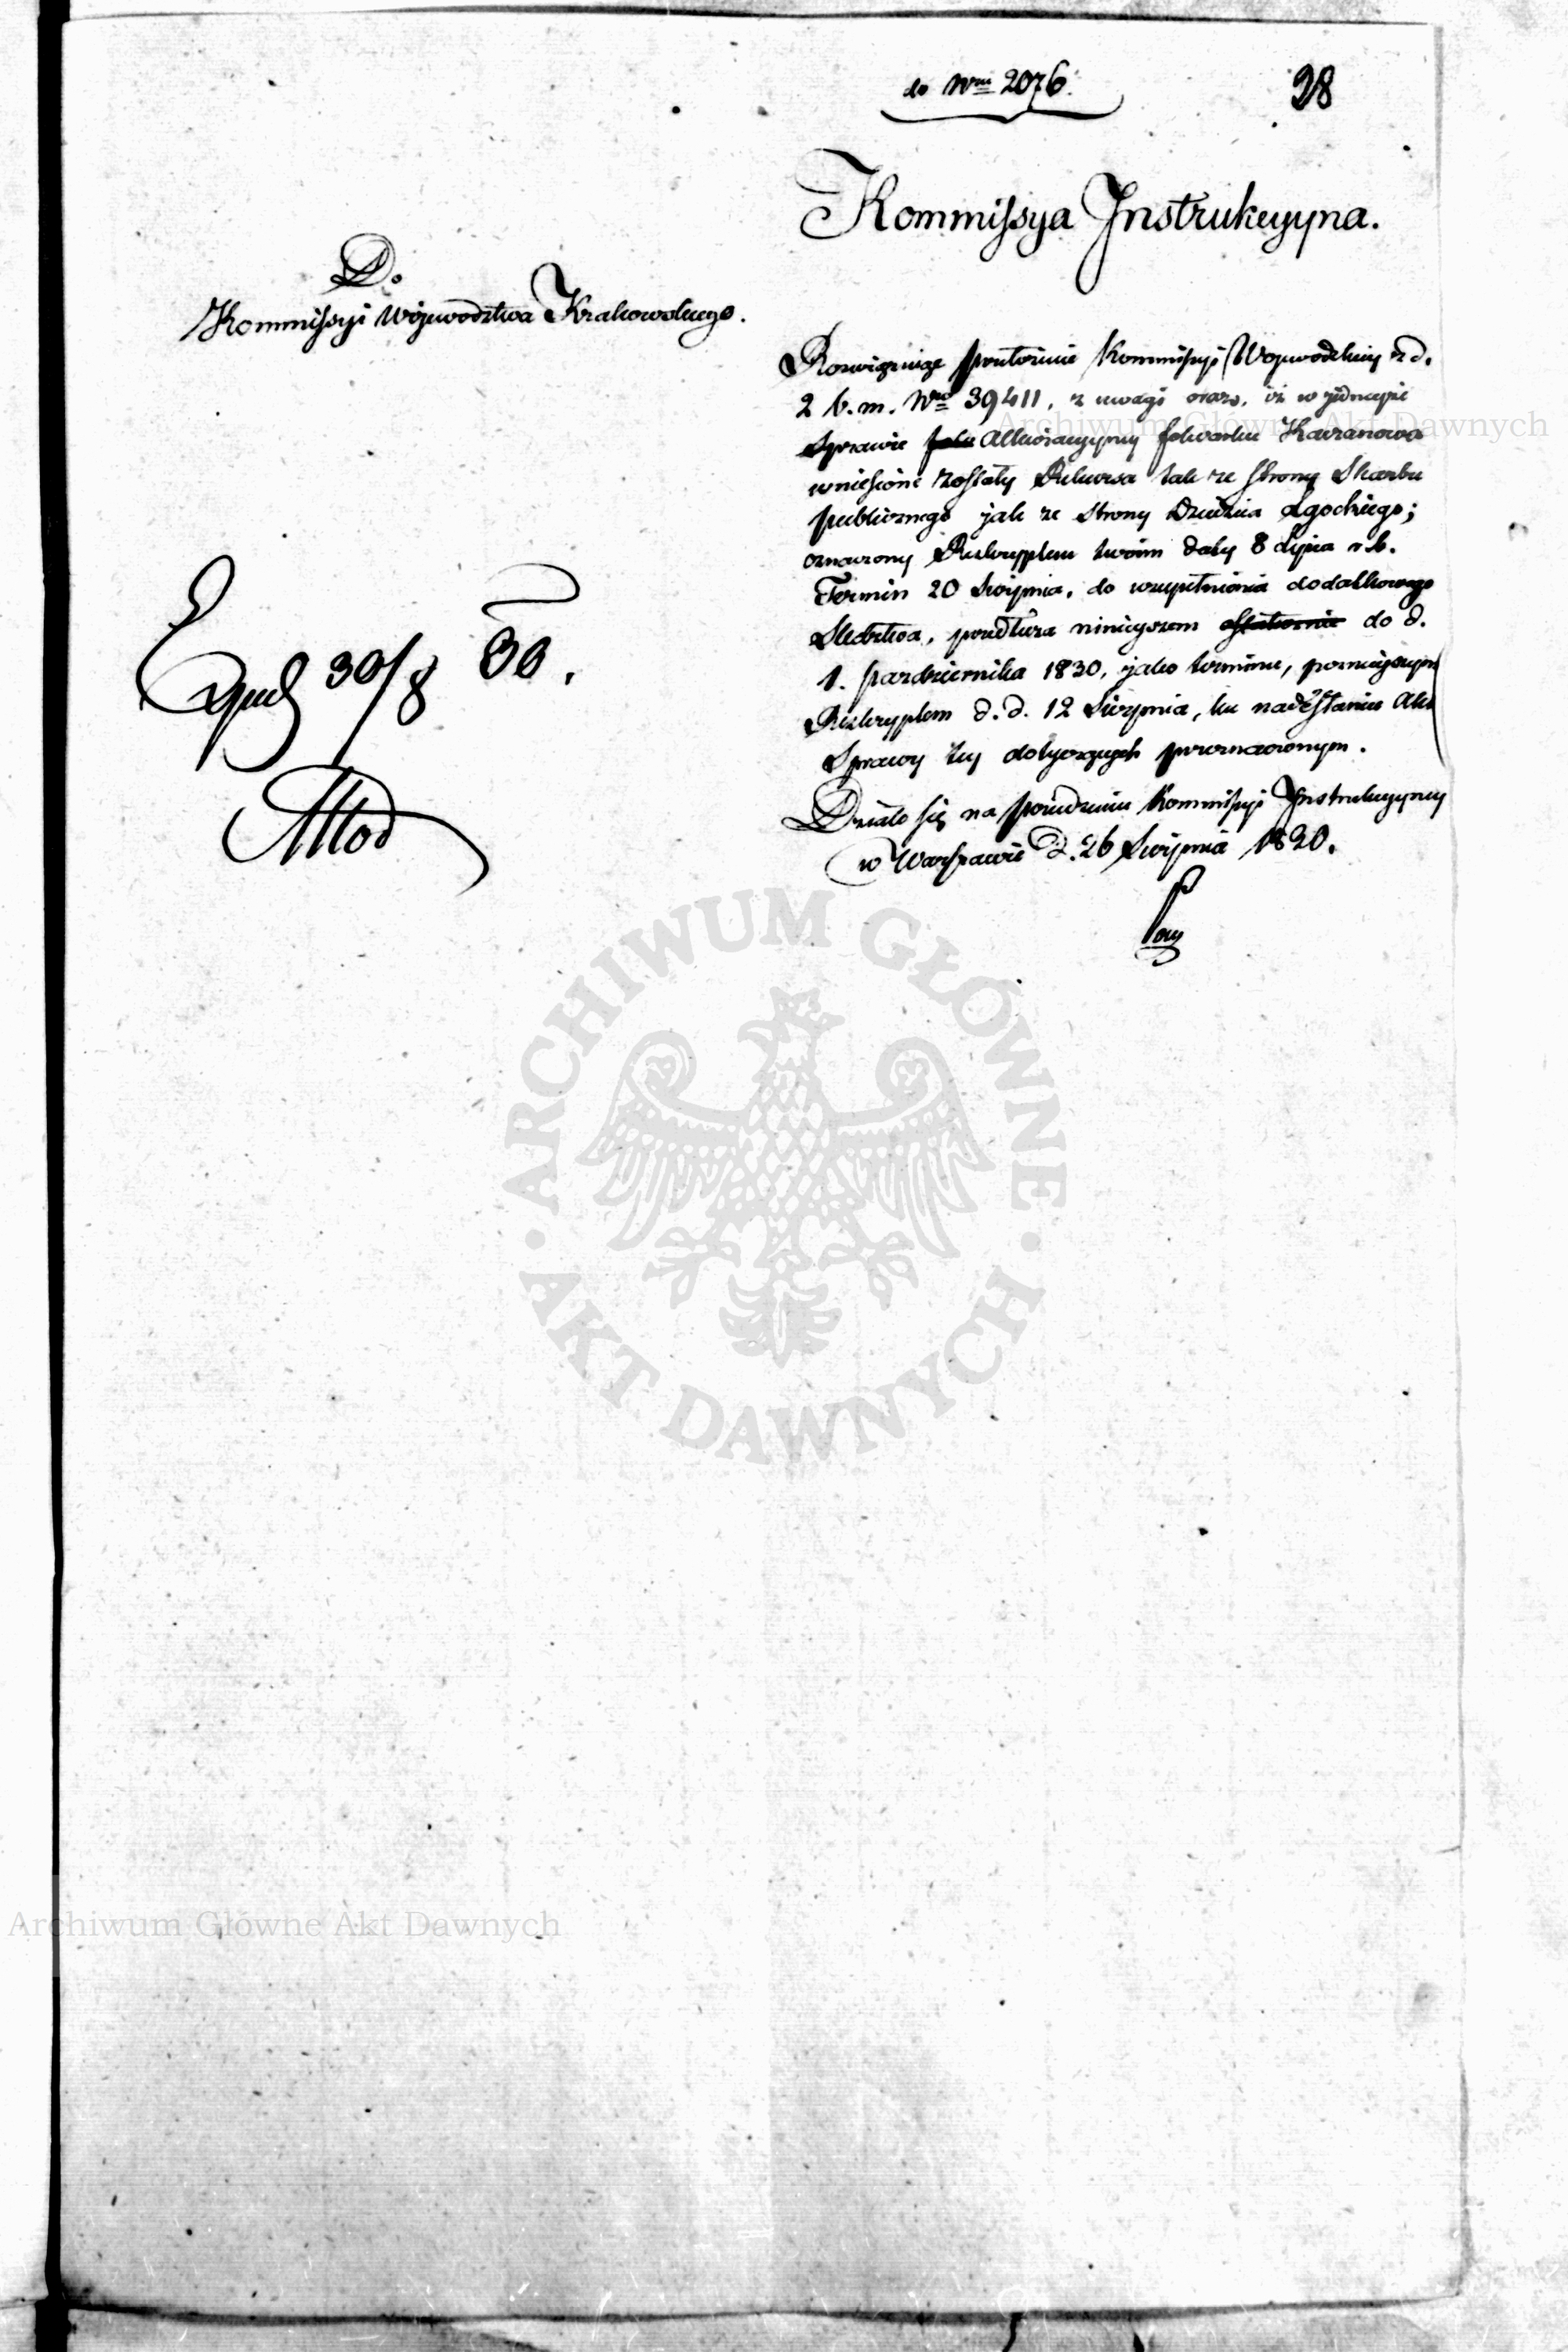 do Nru 2076.
28
Kommissya Instrukcyyna.
Do
Kommissyi Województwa Krakowskiego.
Rozwiązuiąc Kommissyi Wojewodzkiey z d.
2 b. m. Nro 39411, z uwagi oraz, iż w
Sprawie Attenacyyney folwarku
wniesione zostały Rekursa tak ze strony Skarbu
publicznego jak ze Strony Dziedzica Zgockiego;
oznaczony Reskryptem swoim daty 8 Lipca r. b.
Termin 20 Sierpnia, do uzupełnienia dodatkowego
Śledztwa, przedłuża ninieyszem ostatecznie do d.
1. października 1830, jako terminu, poznieyszym
Reskryptem d. d. 12 Sierpnia, ku nadesłaniu Akt
Sprawy tey dotyczących przeznaczonym.
Działo się na posiedzeniu Kommissyi Instrukcyyney
w Warszawie d. 26 Sierpnia 1830.
Exped 30/8 30.
Archiwum Główne Akt Dawnych
ARCHIWUM GŁÓWNE
AKT DAWNYCH
Archiwum Główne Akt Dawnych